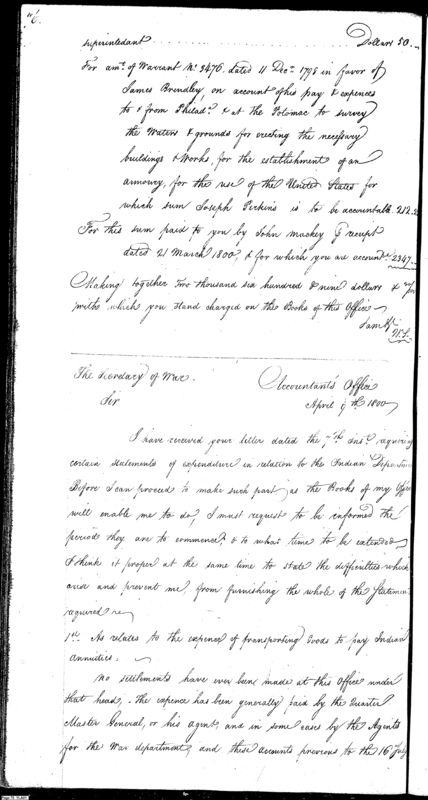 superintendant Dollars 50.
For amt. of Warrant No. 2476. dated 11 Decr. 1798 in favor of
James Brindley, on account of his pay & expences
to & from Philada. & at the Potomac to survey
the Waters & grounds for erecting the necessary
buildings & Works, for the establishment of an
armoury, for the use of the United States for
which sum Joseph Perkins is to be accountable. 212.
For this sum paid to you by John Mackey receipt
dated 21 March 1800, & for which you are accounte. 2347.
Making together Two thousand six hundred & nine dollars &
which you stand charged on the Books of this Office
I am Sir
The Secretary of War. Accountant's Office
Sir April 9th. 1800
I have received your letter dated the 7th Inst. requiring
certain statements of expenditure in relation to the Indian Department
Before I can proceed to make such part as the Books of my Office
will enable me to do, I must request to be informed the
period they are to commence & to what time to be extended
I think it proper at the same time to state the difficulties which
arise and prevent me from furnishing the whole of the Statement
required
1st. As relates to the expence of transporting Goods to pay Indian
annuities.
No settlements have ever been made at this Office under
that head, The expence has been generally paid by the Quarter
Master General, or his agent, and in some cases by the Agents
for the War department, and these accounts previous to the 16 July